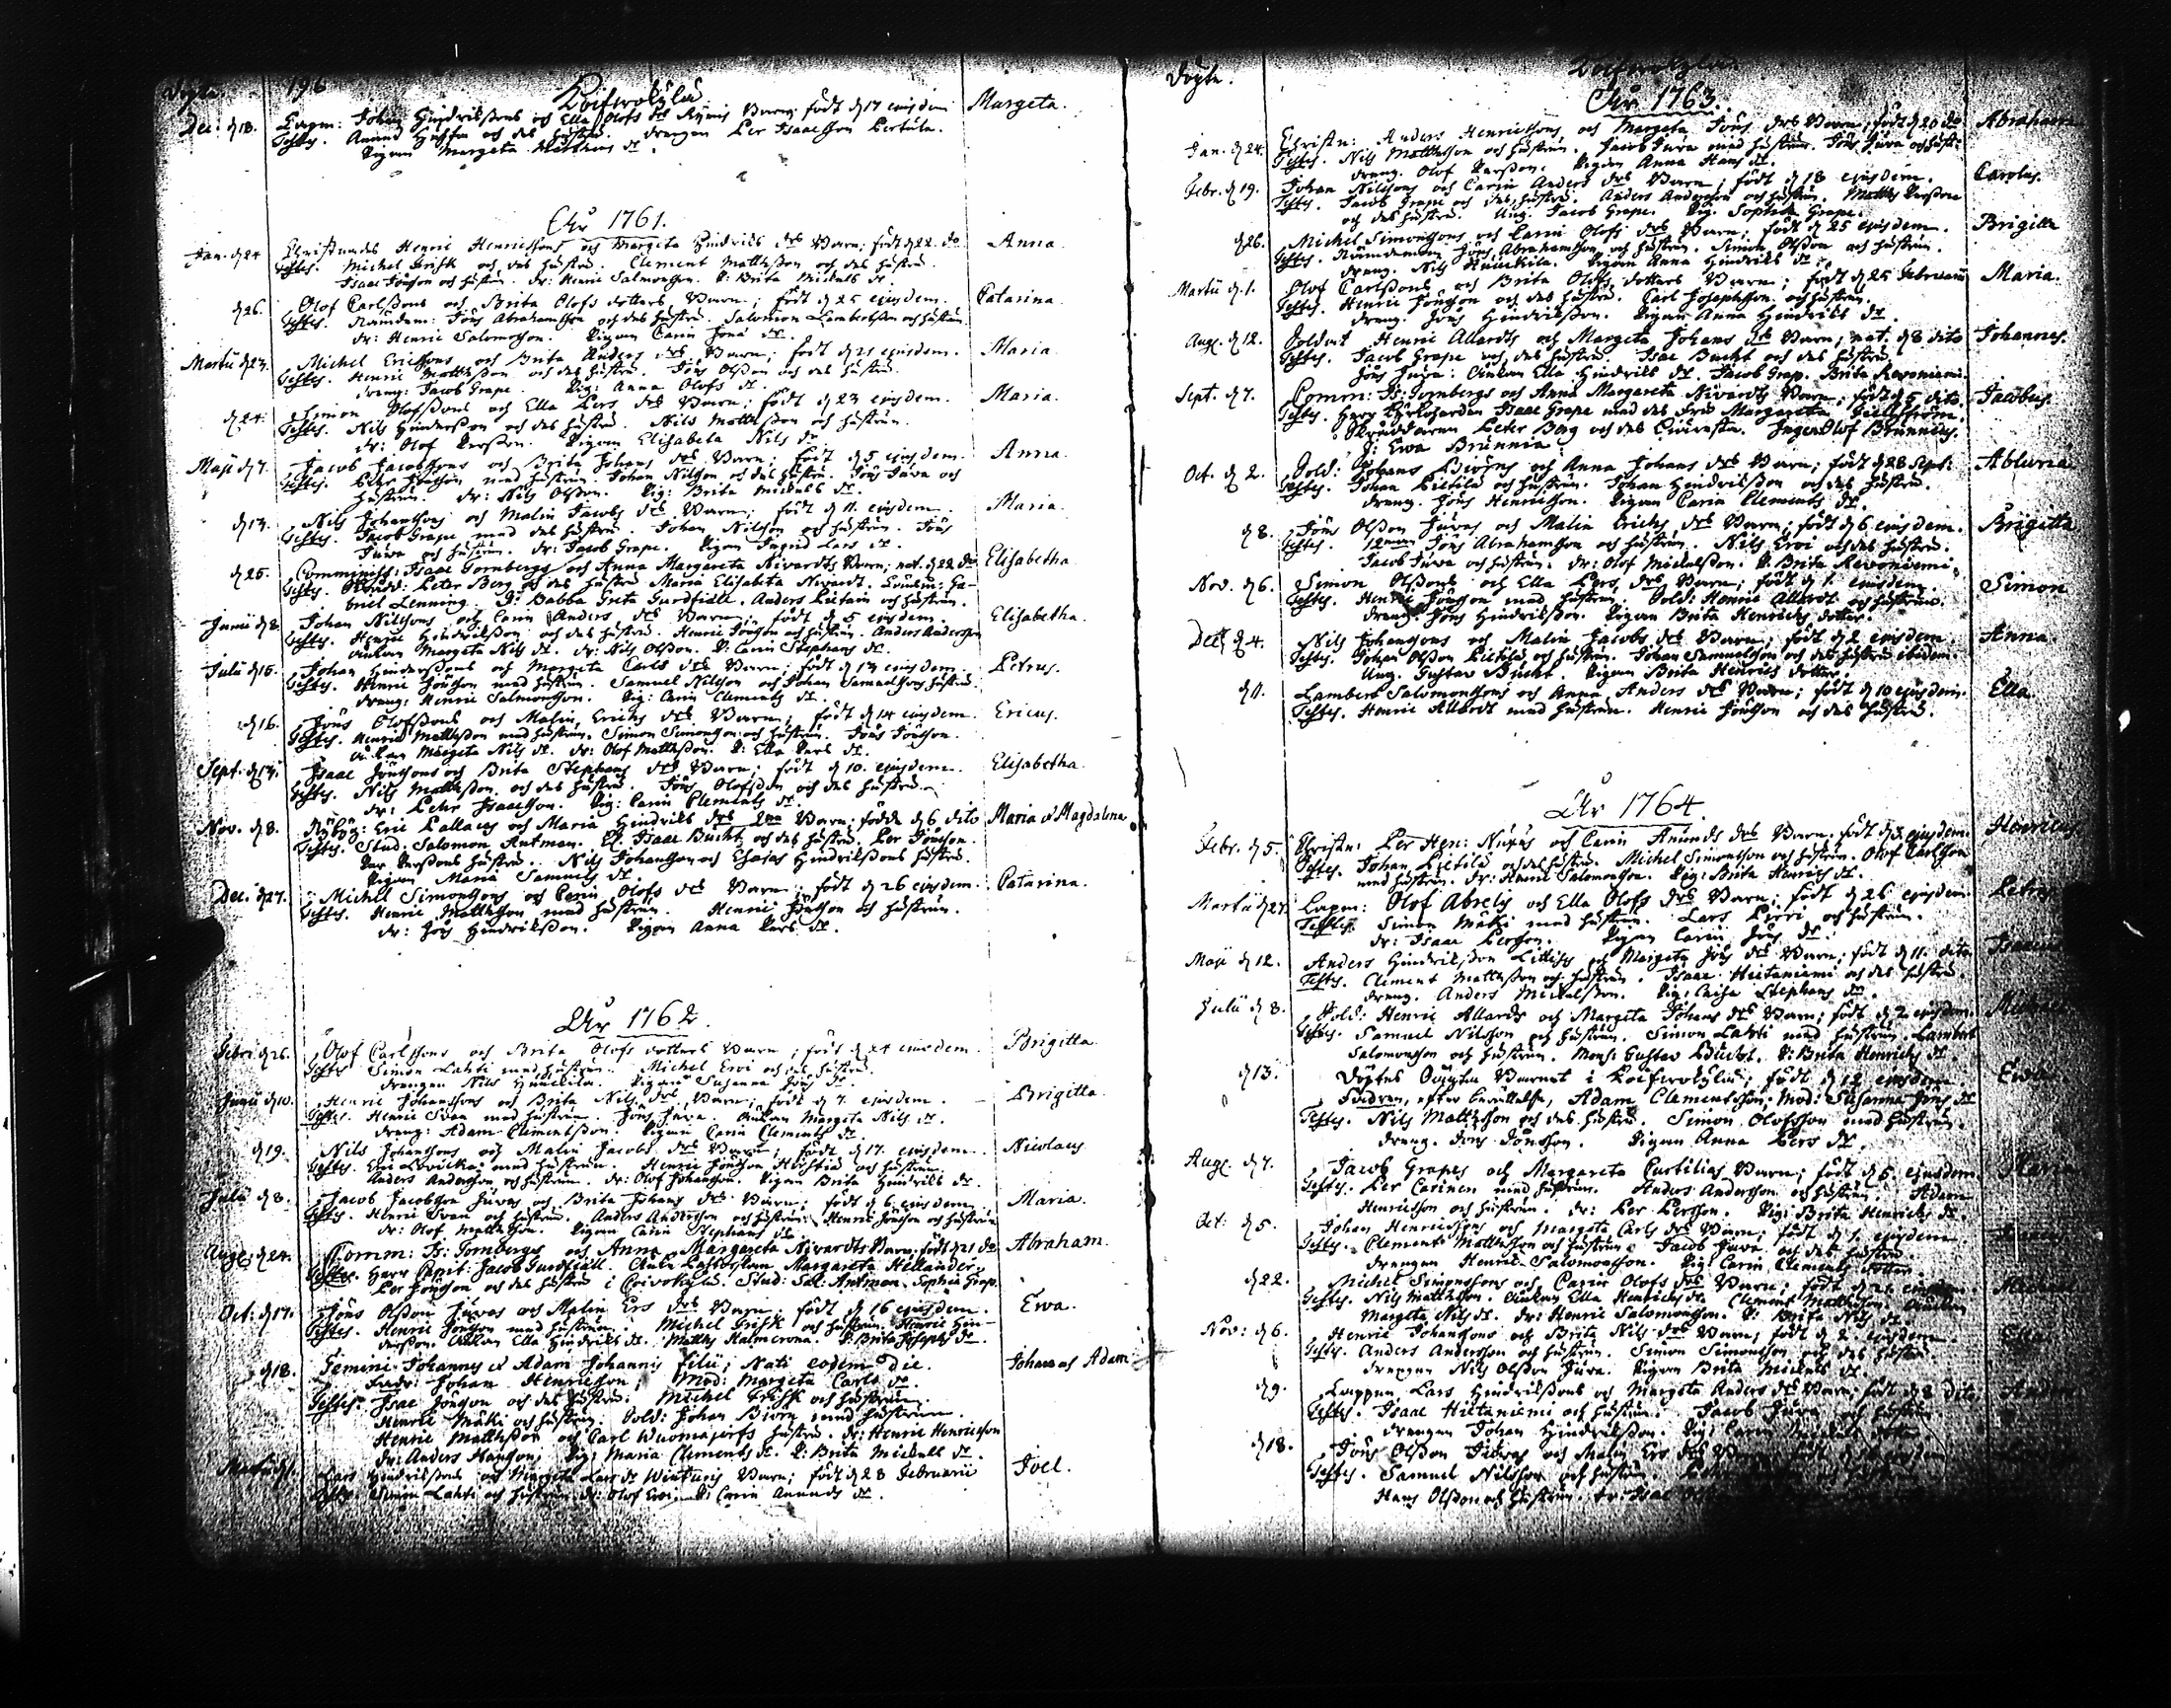 Döpte. 196
Dec: d 18. Lapm: Johan Hindrikssons och Ella Olofs dr Barn; född d 17 ejusdem Margeta.
Testes. Amund och des hustru. drengen Per Isaacsson
Pigan Margeta Matthiæ dr.
Åhr 1761.
Jan. d 24 Henric Henricssons och Margeta Hindriks drs Barn; född d 22. do Anna.
Testes. Michel Frisk och des hustru. Clement Mattsson och des hustru.
Isaac Jönsson och hustru. dr: Henric Salmonsson. P: Brita Mickels dr.
d 26. Olof Carlssons och Brita Olofs dotters Barn; född d 25 ejusdem. Catarina.
Testes. Nämdem: Jöns Abrahamsson och des hustru. Salomon Lambertsson och hustru.
dr: Henric Salomonsson. Pigan Carin Jöns dr.
Martii d 23. Michel Ericssons och Brita Anders drs Barn; född d 21 ejusdem. Maria.
Testes. Henric Mattsson och des hustru. Jöns Olsson och des hustru.
dreng: Jacob Grape. Pig: Anna Olofs dr.
d 24. Simon Olofssons och Ella Pers drs Barn; född d 23 ejusdem. Maria.
Testes. Nils Hindersson och des hustru. Nils Mattsson och hustrun.
dr: Olof Persson. Pigan Elisabeta Nils dr.
Maji d 7. Jacob Jacobssons och Brita Johans drs Barn; född d 5 ejusdem. Anna.
Testes. Pehr Jönsson med hustrun. Johan Nilsson och des hustru. Jöns Juva och
hustrun. dr: Nils Olsson. Pig: Brita Mickels dr.
d 13. Nils Johanssons och Malin Jacobs drs Barn; född d 11. ejusdem. Maria.
Testes. Jacob Grape med des hustru. Johan Nilsson och hustrun. Jöns
Juva och hustrun. dr: Jacob Grape. Pigan Ingrid Lars dr.
d 25. Comminist: Isaac Tornbergs och Anna Margareta Nivardts Barn; nat. d 22 do Elisabetha.
Testes. Peter Berg och des hustru Maria Elisabeta Nivardt. Ga-
briel Lenning. Babba Greta Gurdfiält. Anders och hustrun.
Junii d 8. Johan Nilssons och Carin Anders drs Barn; född d 5 ejusdem. Elisabetha.
Testes. Henric Hindriksson och des hustru. Henric Jönsson och hustrun. Anders Andersson
Änkan Margeta Nils dr. dr: Nils Olsson. P: Carin Stephans dr.
Julii d 15. Johan Hinderssons och Margeta Carls drs Barn; född d 13 ejusdem. Petrus.
Testes. Henric Jönsson med hustrun. Samuel Nilsson och Johan Samuelssons hustru.
dreng: Henric Salmonsson. Pig: Carin Clements dr.
d 16. Jöns Olofssons och Malin Erichs drs Barn; född d 14 ejusdem. Ericus.
Testes. Henric Mattsson med hustrun. Simon Simonsson och hustrun. Jöns Jönsson.
Änkan Margeta Nils dr. dr: Olof Mattsson. P: Ella Pers dr.
Sept. d 13. Isaac Jönssons och Brita Stephans drs Barn; född d 10. ejusdem. Elisabetha.
Testes. Nils Mattsson och des hustru. Jöns Olofsson och des hustru.
dr: Pehr Isaacsson. Pig: Carin Clements dr.
Nov. d 8. Eric Pallaus och Maria Hindriks drs Barn; födde d 6 dito Maria et Magdalena
Testes. Stud: Salomon Antman. Isaac Bucht och des hustru. Per Jönsson.
Per Perssons hustru. Nils Johansson och Esaias Hindrikssons hustru.
Pigan Maria Samuels dr.
Dec. d 27. Michel Simonssons och Carin Olofs drs Barn; född d 26 ejusdem. Catarina.
Testes. Henric Mattsson med hustrun. Henric Jönsson och hustrun.
dr: Jöns Hindriksson. Pigan Anna Pers dr.
Åhr 1762.
Febr: d 26. Olof Carlssons och Brita Olofs dotters Barn; född d 24 ejusdem. Brigitta.
Testes Simon Lahti med hustrun. Michel Eroi och des hustru.
drengen Nils. Pigan Susanna Jöns dr.
Junii d 10. Henric Johanssons och Brita Nils drs Barn; född d 7. ejusdem. Brigitta.
Testes. Henric Svan med hustrun. Jöns Juva. Änkan Margeta Nils dr.
dreng: Adam Clementsson. Pigan Carin Clements dr.
d 19. Nils Johanssons och Malin Jacobs drs Barn; född d 17. ejusdem. Nicolaus
Testes. Eric med hustrun. Henric Jönsson och hustrun.
Anders Andersson och hustrun. dr: Olof Johansson. Pigan Brita Hindriks dr.
Julii d 8. Jacob Jacobsson Juvas och Brita Johans drs Barn; född d 6 ejusdem. Maria.
Testes. Henric Svan och hustrun. Anders Andersson och hustrun. Henric Jönsson och hustrun
dr: Olof Mattsson. Pigan Carin Stephans dr.
Aug: d 24. Comm: Is: Tornbergs och Anna Margareta Nivardts Barn; född d 21 do Abraham.
Testes. Herr Capit: Jacob Gurdfiält. Margareta Hellander.
Per Jönsson och des hustru i. Stud: Sal: Antman. Sophia Grap.
Oct: d 17. Jöns Olsson Juvas och Malin Ers drs Barn; född d 16 ejusdem. Ewa.
Testes. Henric Jönsson med hustrun. Michel Frisk och hustrun. Henric Hin-
dersson. Änkan Ella Hindriks dr. Matths Halmerona. P: Brita Josephs dr.
d 18. Gemini Johannes et Adam Johannis filii; Nati eodem Die. Johan och Adam
Fadr: Johan Henricsson; Mod: Margeta Carls dr.
Testes. Isac Jönsson och des hustru. Michel Frisk och hustrun.
Henric Mäki och hustrun. Sold: Johan Biörn med hustrun.
Henric Mattsson och Carl hustru. dr: Henric Henricsson
dr: Anders Hansson; Pig: Maria Clements dr. P: Brita Mickels dr.
Lars Hindrikssons och Margeta Lars dr Barn; född d 28 Februarii Joel.
Testes Simon Lahti och hustrun. dr: Olof Eroi. P: Carin Amunds dr.
Döpte.
Åhr 1763.
Jan. d 24. Christn: Anders Henricssons och Margeta Jöns drs Barn; född d 20 do Abraham
Testes. Nils Mattsson och hustrun. Jacob Juva med hustrun. Jöns Juva och hust:
dreng. Olof Persson. Pigan Anna Hans dr.
Febr. d 19. Johan Nilssons och Carin Anders drs Barn; född d 18 ejusdem. Carolus.
Testes. Jacob Grape och des hustru. Anders Andersson och hustrun. Matths Persson
och des hustru. Ung. Jacob Grape. Pig. Sophia Grape.
d 26. Michel Simonssons och Carin Olofs drs Barn; född d 25 ejusdem. Brigitta
Testes. Nämdeman Jöns Abrahamsson och hustrun. Simon Olsson och hustrun.
dreng. Nils. Pigan Anna Hindriks dr.
Martii d 1. Olof Carlssons och Brita Olofs dotters Barn; född d 25 Februarii Maria.
Testes. Henric Jönsson och des hustru. Carl Josephsson och hustrun.
dreng. Jöns Hindriksson. Pigan Anna Hindriks dr.
Aug. d 12. Soldat Henric Allardts och Margeta Johans drs Barn; nat. d 8 dito Johannes.
Testes. Jacob Grape och des hustru. Isac Bucht och des hustru.
Jöns Juva: Änkan Ella Hindriks dr. Jacob Grap. Brita Revoniemi.
Sept. d 7. Comm: Is: Tornbergs och Anna Margareta Nivardts Barn; född d 5 dito. Jacobus.
Testes. Herr Kyrkoherden Isaac Grape med des Fru Margareta.
Skräddaren Peter Berg och des. Olof Brunnius.
J: Ewa Brunnia.
Oct. d 2. Sold: Johans Biörns och Anna Johans drs Barn; född d 28 Sept: Abluna
Testes. Johan Pietilä och hustrun. Johan Hindriksson och des hustru.
dreng. Jöns Henricsson. Pigan Carin Clements dr.
d 8. Jöns Olsson Juvas och Malin Erichs drs Barn; född d 6 ejusdem. Brigitta
Testes. Jöns Abrahamsson och hustrun. Nils Eroi och des hustru.
Jacob Juva och hustrun. dr: Olof Mickelsson. P: Brita Revoniemi.
Nov. d 6. Simon Olssons och Ella Pers drs Barn; född d 1. ejusdem. Simon
Testes. Henric Jönsson med hustrun. Sold: Henric Allardt och hustrun.
dreng. Jöns Hindriksson. Pigan Brita Henrichs dotter.
Dec: d 4. Nils Johanssons och Malin Jacobs drs Barn; född d 2 ejusdem. Anna.
Testes. Johan Olsson Pietilä och hustrun. Johan Samuelsson och des hustru ibidem.
Ung. Gustav Bucht. Pigan Brita Henrics dotter.
d 11. Lambert Salomonssons och Anna Anders drs Barn; född d 10 ejusdem. Ella.
Testes. Henric Allardt med hustrun. Henric Jönsson och des hustru.
Åhr 1764.
Febr. d 5. Christn: Per Hen: och Carin Amunds drs Barn. född d 3 ejusdem. Henricus
Testes. Johan Pietilä och des hustru. Michel Simonsson och hustrun. Olof Carlsson
med hustrun. dr: Henric Salomonsson. Pig: Brita Henrics dr.
Martii d 27. Lapm: Olof Abrels och Ella Olofs drs Barn; född d 26 ejusdem. Petrus
Testes. Simon Mäki med hustrun. Lars och hustrun.
dr: Isaac Persson. Pigan Carin Jöns dr.
Maji d 12. Anders Hindriksson och Margeta Jöns drs Barn; född d 11. dito
Testes. Clement Mattsson och hustrun. Isaac Hietaniemi och des hustru.
dreng. Anders Mickelsson. Pig: Caisa Stephans dr.
Julii d 8. Sold: Henric Allards och Margeta Johans drs Barn; född d 2 ejusdem.
Testes. Samuel Nilsson och hustrun. Simon Lahti med hustrun. Lambert
Salomonsson och hustrun. Mons: Gustav Bucht. P: Brita Henrichs dr.
d 13. Döptes Oägta Barnet i; född d 12 ejusdem. Ewa
Fadren, efter berättelse, Adam Clementsson. Mod: Susanna Jöns dr
Testes. Nils Mattsson och des hustru. Simon Olofsson med hustrun.
dreng. Jöns Jönsson. Pigan Anna Pers dr.
Aug: d 7. Jacob Grapes och Margareta Curtilias Barn; född d 6. ejusdem
Testes. Per Carinen med hustrun. Anders Andersson och hustrun. Adam
Henricsson och hustrun. dr: Per Persson. Pig: Brita Henrichs dr.
Oct: d 5. Johan Henricssons och Margeta Carls drs Barn; född d 1. ejusdem
Testes. Clement Mattsson och hustrun. Jacob Juva och des hustru.
drengen Henric Salomonsson. Pig: Carin Clements dotter.
d 22. Michel Simonssons och Carin Olofs drs Barn; född d 21 ejusdem.
Testes. Nils Mattsson. Änkan Ella Henrichs dr. Clement Mattsson. Änkan
Margeta Nils dr. dr: Henric Salomonsson. P: Brita Nils dr.
Nov: d 6. Henric Johanssons och Brita Nils drs Barn; född d 2 ejusdem. Ella
Testes. Anders Andersson och hustrun. Simon Simonsson och des hustru
drengen Nils Olsson Juva. Pigan Brita Mickels dr
d 9. Lappen Lars Hindrikssons och Margeta Anders drs Barn; född d 8 dito
Testes. Isaac Hietaniemi och hustrun. Jacob Juva och hustrun
drengen Johan Hindriksson. Pig: Carin
d 18. Jöns Olsson Juvas och Malin Ers drs Barn; född
Testes. Samuel Nilsson och hustrun.
Hans Olsson och hustrun. dr: Isac